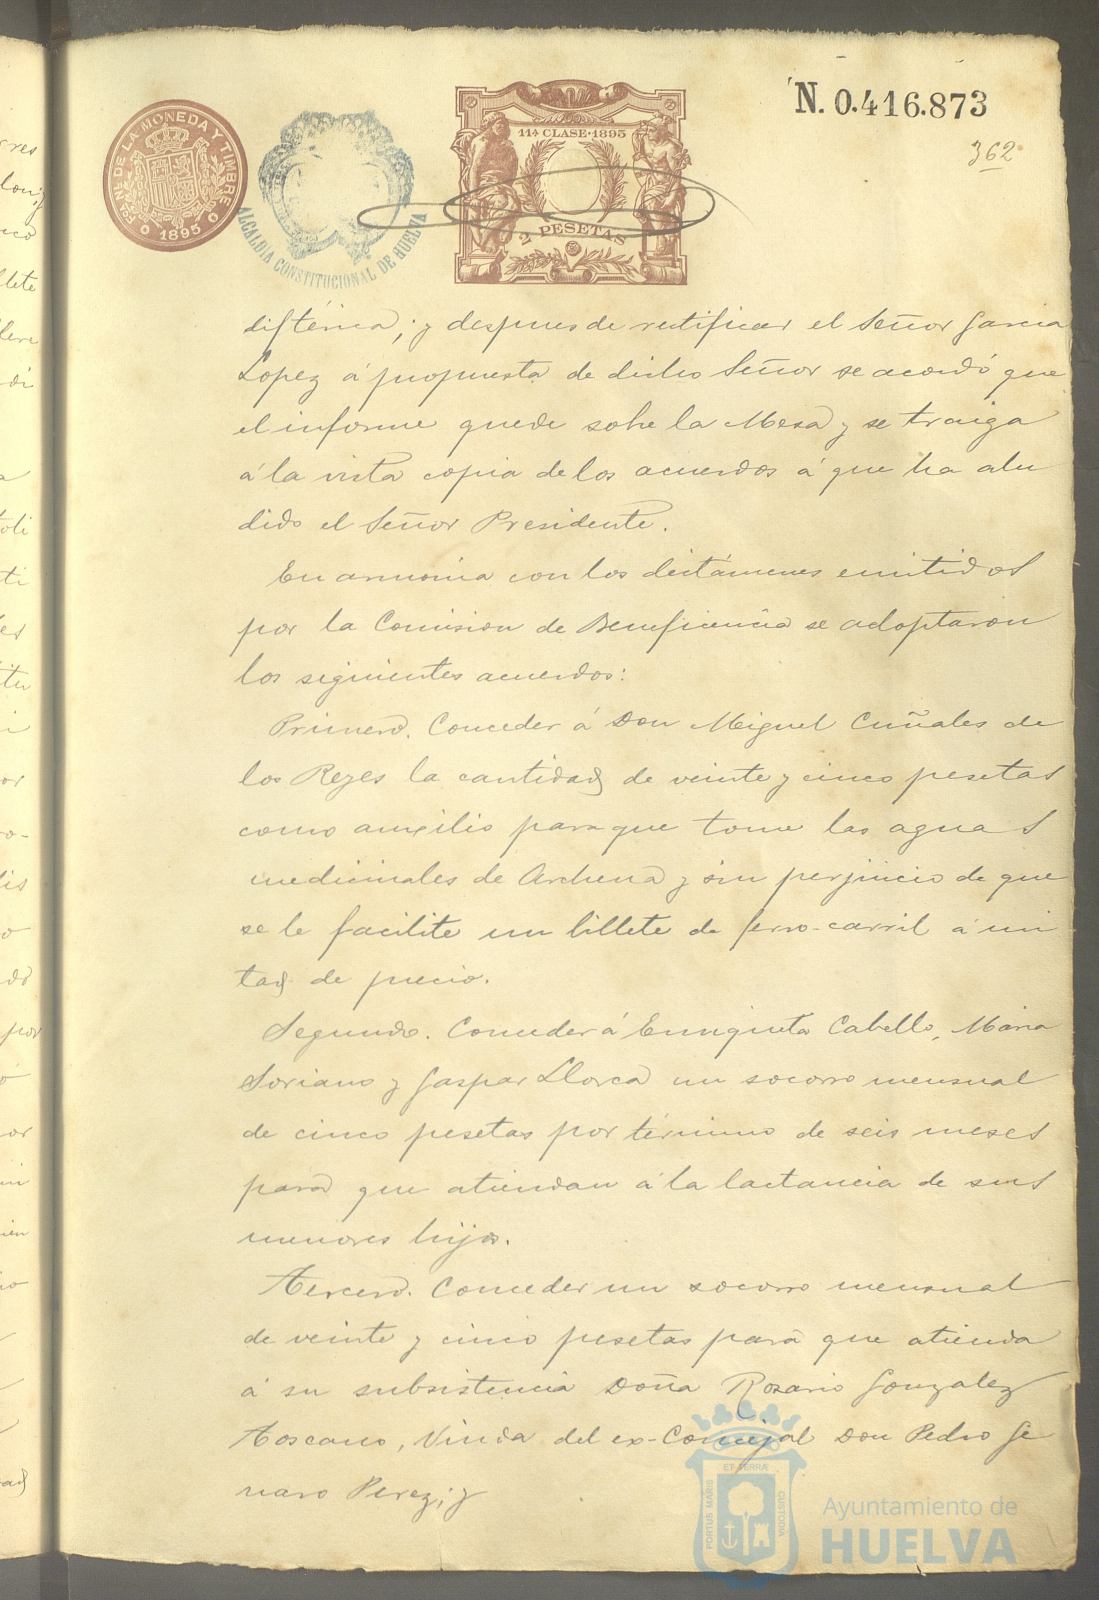 N. 0.416.873
362
FCA. NL. DE LA MONEDA Y TIMBRE
1895
ALCALDÍA CONSTITUCIONAL DE HUELVA
11ª CLASE·1895
2 PESETAS
diftérica; y despues de rectificar el Señor Garcia
Lopez á propuesta de dicho Señor se acordó que
el informe quede sobre la Mesa y se traiga
á la vista copia de los acuerdos á que ha alu
dido el Señor Presidente.
En armonia con los dictámenes emitidos
por la Comision de Beneficencia se adoptaron
los siguientes acuerdos:
Primero. Conceder á Don Miguel Cuñales de
los Reyes la cantidad de veinte y cinco pesetas
como auxilio para que tome las aguas
medicinales de Archena y sin perjuicio de que
se le facilite un billete de ferro-carril á mi
tad de precio.
Segundo. Conceder á Enriqueta Cabello, Maria
Soriano y Gaspar Llorca un socorro mensual
de cinco pesetas por término de seis meses
para que atiendan á la lactancia de sus
menores hijos.
Tercero. Conceder un socorro mensual
de veinte y cinco pesetas para que atienda
á su subsistencia Doña Rosario Gonzalez
Toscano, Viuda del ex-Concejal Don Pedro Ge
naro Perez; y
PORTUS MARIS
ET TERRÆ
CUSTODIA
Ayuntamiento de
HUELVA